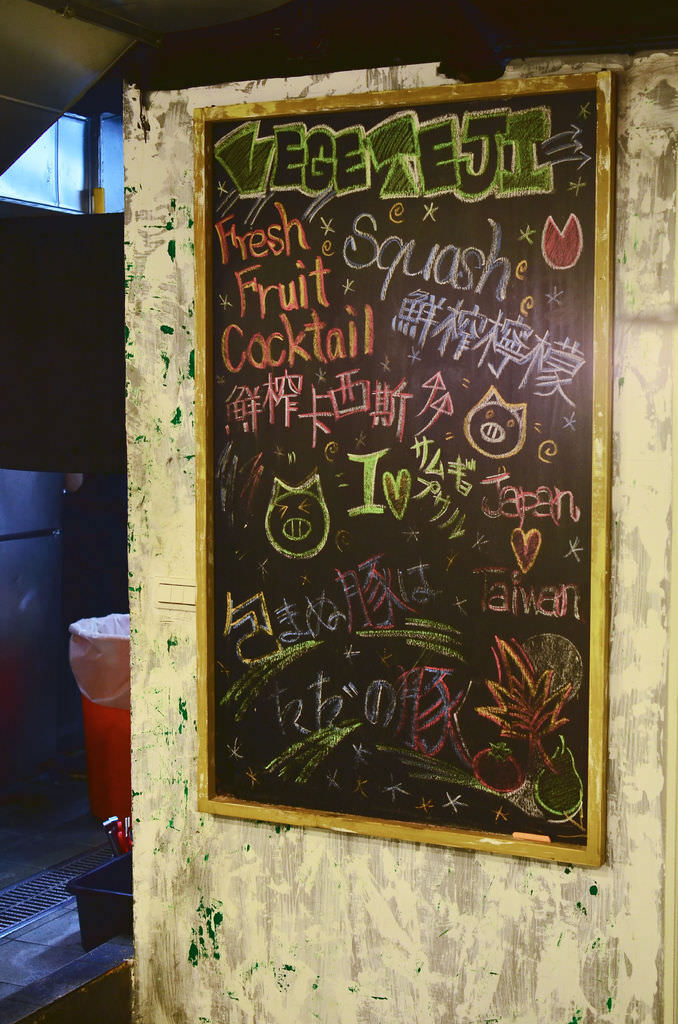 VEGETEJI
Fresh
Fruit
Cocktail
Squash
鮮榨檸檬
鮮榨卡西斯多
I サムギョ
プサル
Japan
Taiwan
包まぬ豚は
ただの豚